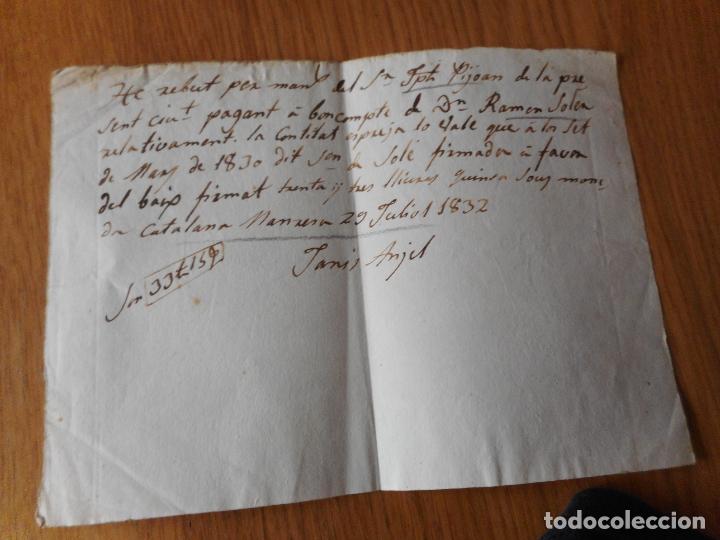 He rebut per mans del Sr Jph Pijoan de la pre
sent ciut pagant á bon compte de Dn Ramon Soler
relativament. la Contitat espreja lo vale que á los set
de Mars de 1830 dit Sor de Solé firmador á favor
del baix firmat trenta y tres lliures quinsa sous mone
da Catalana Manresa 29 Juliol 1832
Son 33t 15s
Anjel
todocoleccion
todocoleccion.net